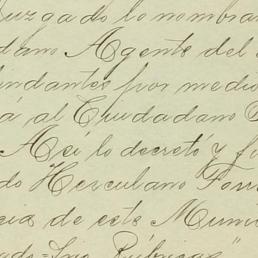 Juzgado lo nombra
dano Agente del
ndantes por medio
á al Ciudadano
Así lo decretó y f
do Herculano
cia de este Muni
Rúbricas"